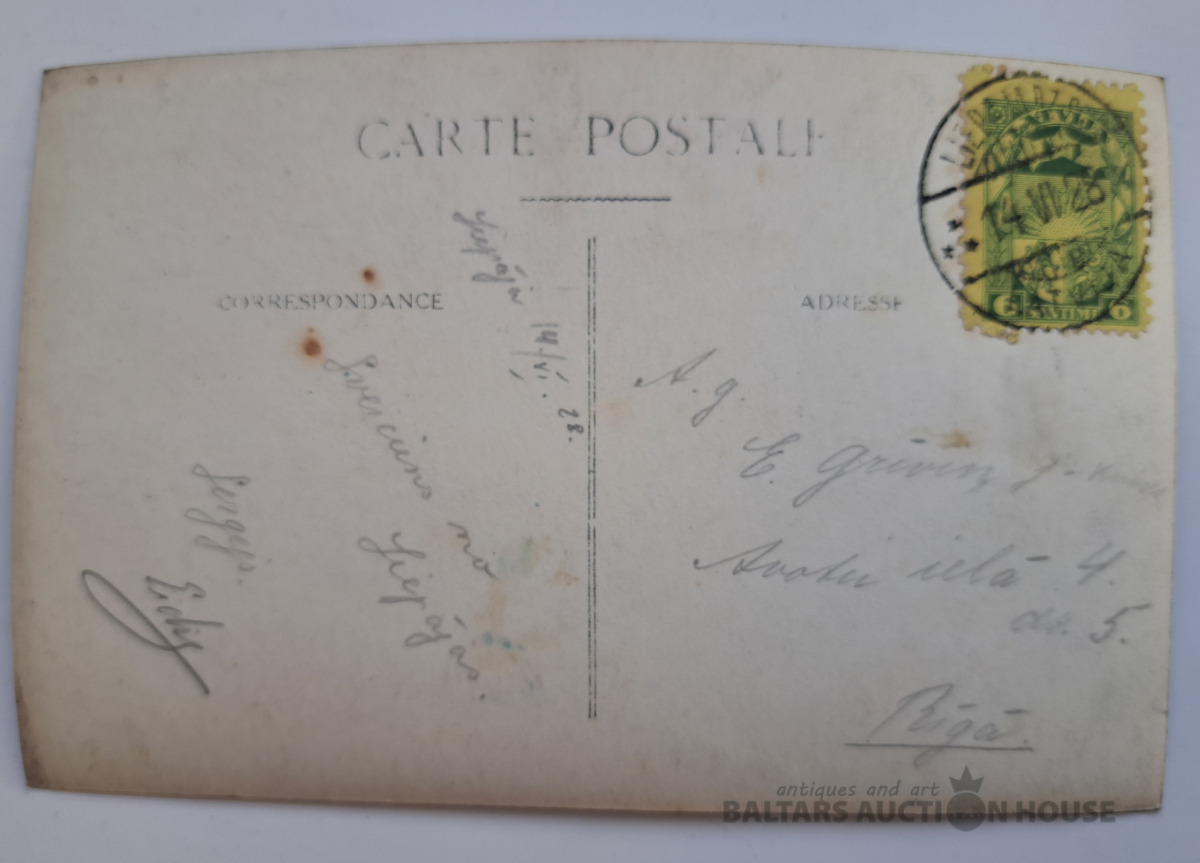 CARTE POSTALE
CORRESPONDANCE
ADRESSE
LATVIJA
14 VI 28
6 6
Liepājā 14/VI. 28.
Sveiciens no
Liepājas.
Sergejs.
A. g.
E. Grīviņ
Avotu ielā 4.
dz. 5.
Rīgā.
antiques and art
BALTARS AUCTION HOUSE